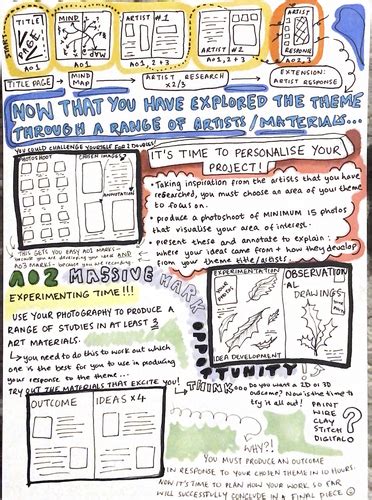 START
TITLE PAGE
MIND MAP
ARTIST #1
ARTIST #2
ARTIST RESPONSE
AO1
AO1
AO1, 2+3
AO1, 2+3
AO2, 3
TITLE PAGE
MIND MAP
ARTIST RESEARCH x2/3
EXTENSION: ARTIST RESPONSE
NOW THAT YOU HAVE EXPLORED THE THEME
THROUGH A RANGE OF ARTISTS/MATERIALS...
YOU COULD CHALLENGE YOURSELF FOR 2 DOUBLES!
PHOTOSHOOT
CHOSEN IMAGES
ANNOTATION
THIS GETS YOU EASY AO1 MARKS -
because you are developing your ideas AND
AO3 MARKS - because you are recording
IT'S TIME TO PERSONALISE YOUR
PROJECT!
• Taking inspiration from the artists that you have
researched, you must choose an area of your theme
to focus on.
• produce a photoshoot of MINIMUM 15 photos
that visualise your area of interest.
• Present these and annotate to explain
where your ideas came from + how they develop
from your theme title/artists.
AO2 MASSIVE MARK
OPPORTUNITY
EXPERIMENTING TIME!!!
USE YOUR PHOTOGRAPHY TO PRODUCE A
RANGE OF STUDIES IN AT LEAST 3
ART MATERIALS.
you need to do this to work out which
one is the best for you to use in producing
your response to the theme...
TRY OUT THE MATERIALS THAT EXCITE YOU!
EXPERIMENTATION
IDEA DEVELOPMENT
OBSERVATIONAL
DRAWINGS
THINK...
Do you want a 2D or 3D
outcome? Now is the time to
try it all out!
PAINT
WIRE
CLAY
STITCH
DIGITAL
?
OUTCOME
IDEAS x4
WHY?!
YOU MUST PRODUCE AN OUTCOME
IN RESPONSE TO YOUR CHOSEN THEME IN 10 HOURS.
NOW IT'S TIME TO PLAN HOW YOUR WORK SO FAR
WILL SUCCESSFULLY CONCLUDE IN A FINAL PIECE